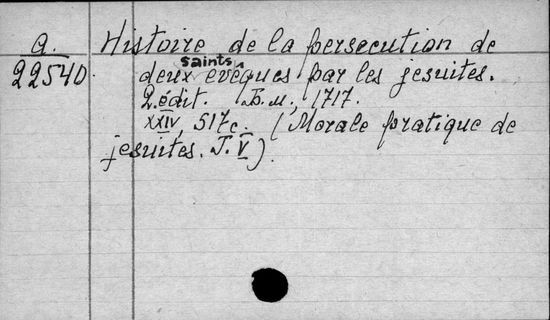 a.
22540.
Histoire de la persecution de
deux saints evêques par les jesuites.
2.édit. Б.м., 1717.
XXIV, 517c. (Morale pratique de
jesuites. T. V).